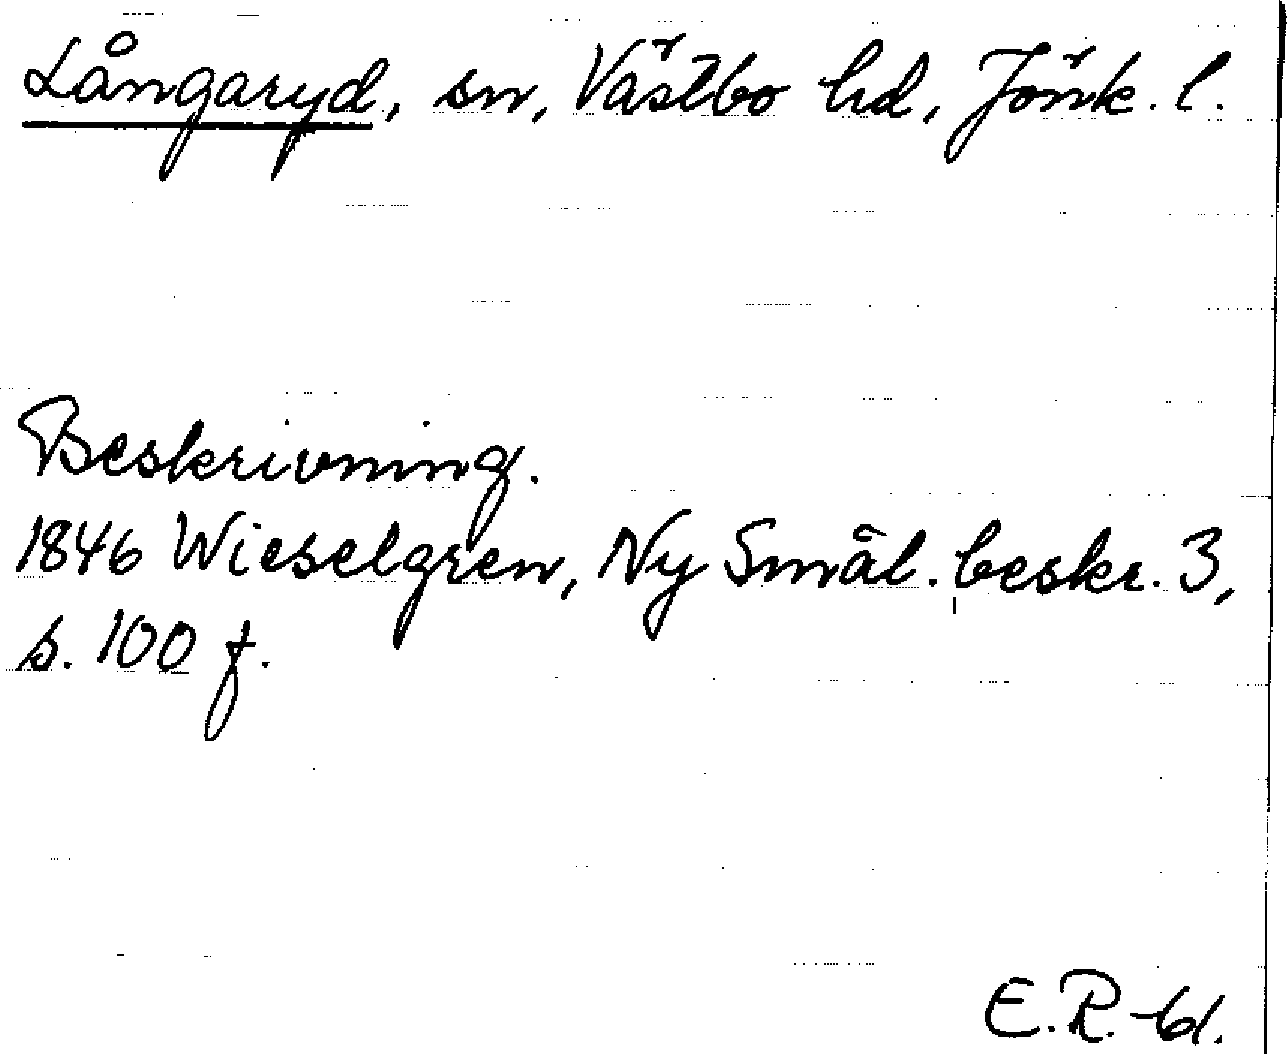 Långaryd, sn, Västbo hd, Jönk. l.
Beskrivning.
1846 Wieselgren, Ny Smål. beskr. 3,
s. 100 f.
E.R.-61.